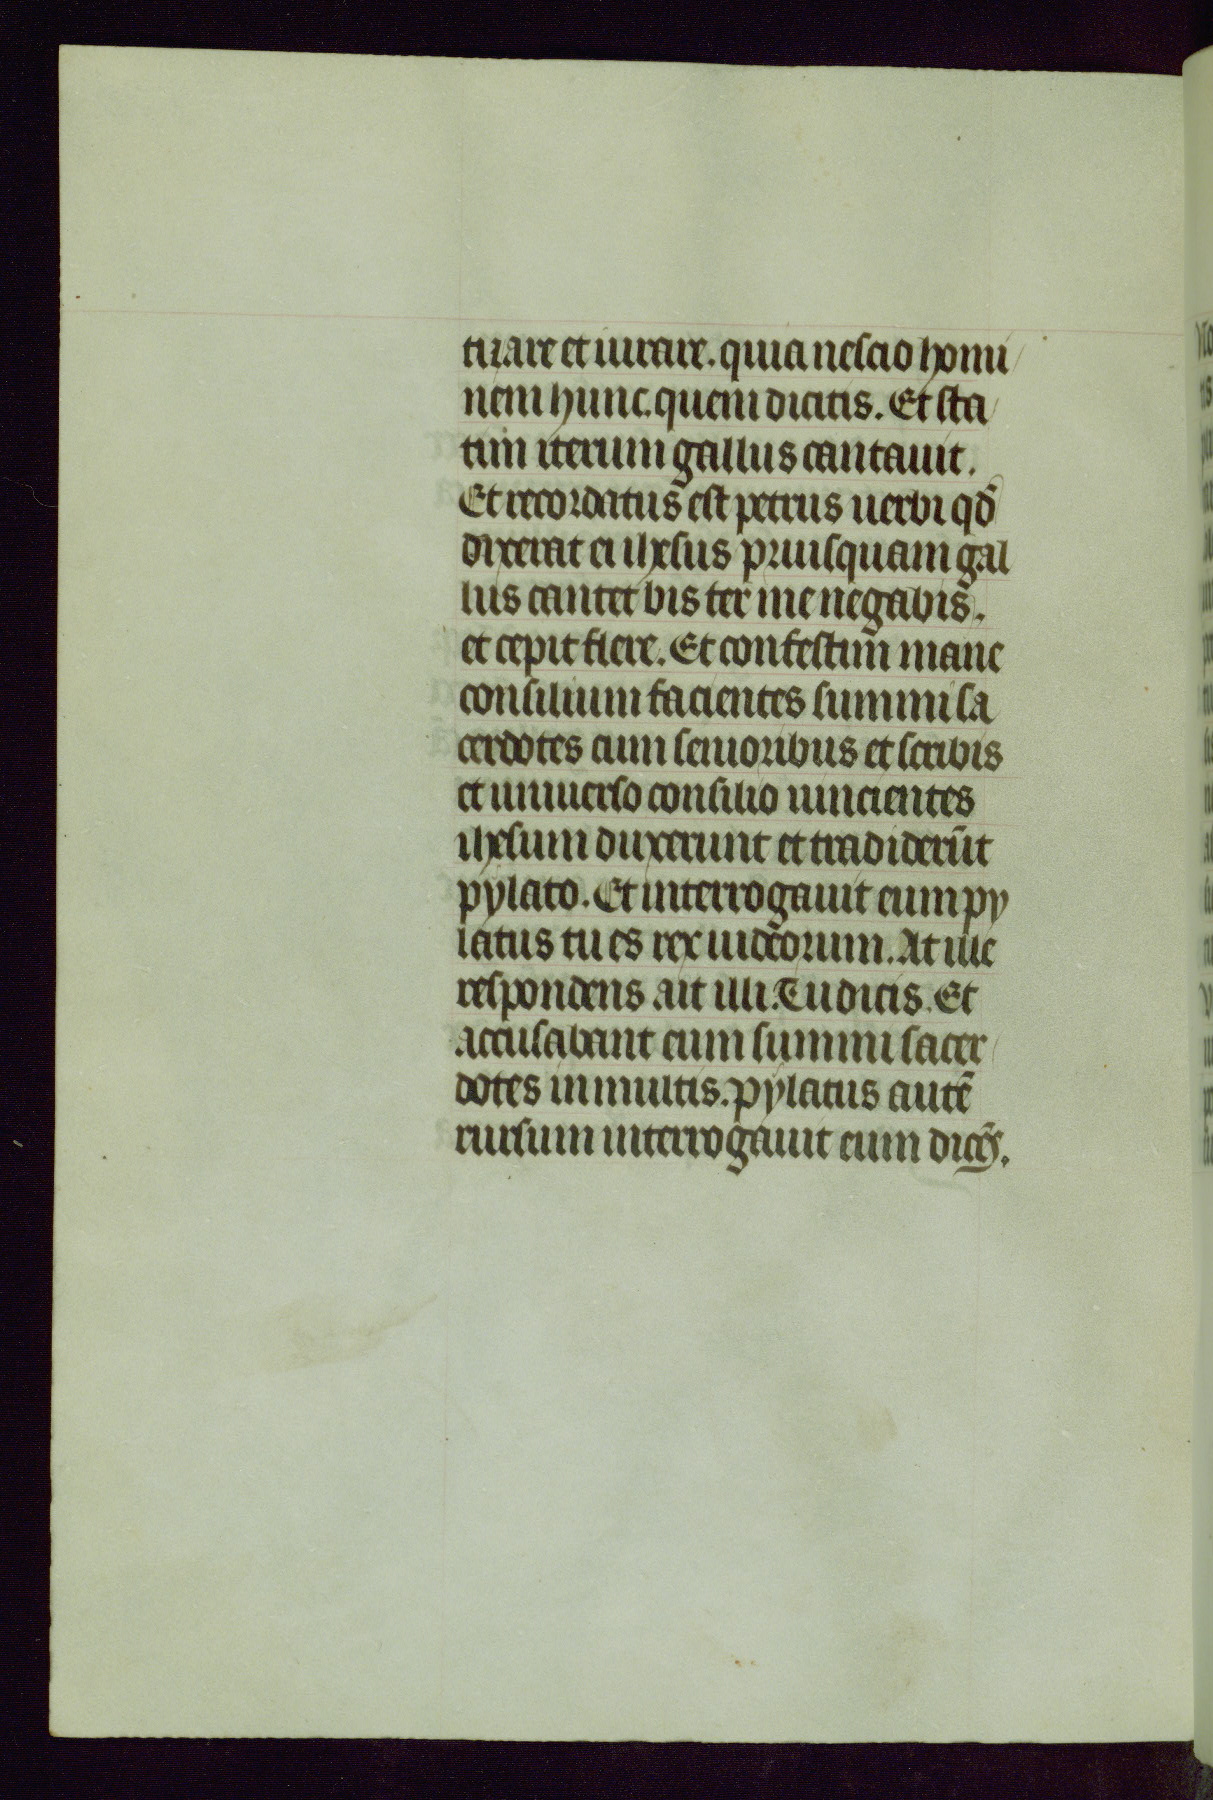 tizare et iurare. quia nescio homi
nem hunc. quem dicitis. Et sta
tim iterum gallus cantauit.
Et recordatus est petrus uerbi qd̄
dixerat ei ihesus priusquam gal
lus cantet bis ter me negabis.
et cepit flere. Et confestim mane
consilium facientes summi sa
cerdotes cum senioribus et scribis
et uniuerso consilio uincientes
ihesum duxerunt et tradiderūt
pylato. Et interrogauit eum py
latus tu es rex iudeorum. At ille
respondens ait illi. Tu dicis. Et
accusabant eum summi sacer
dotes in multis. pylatus autē
rursum interrogauit eum dicēs.